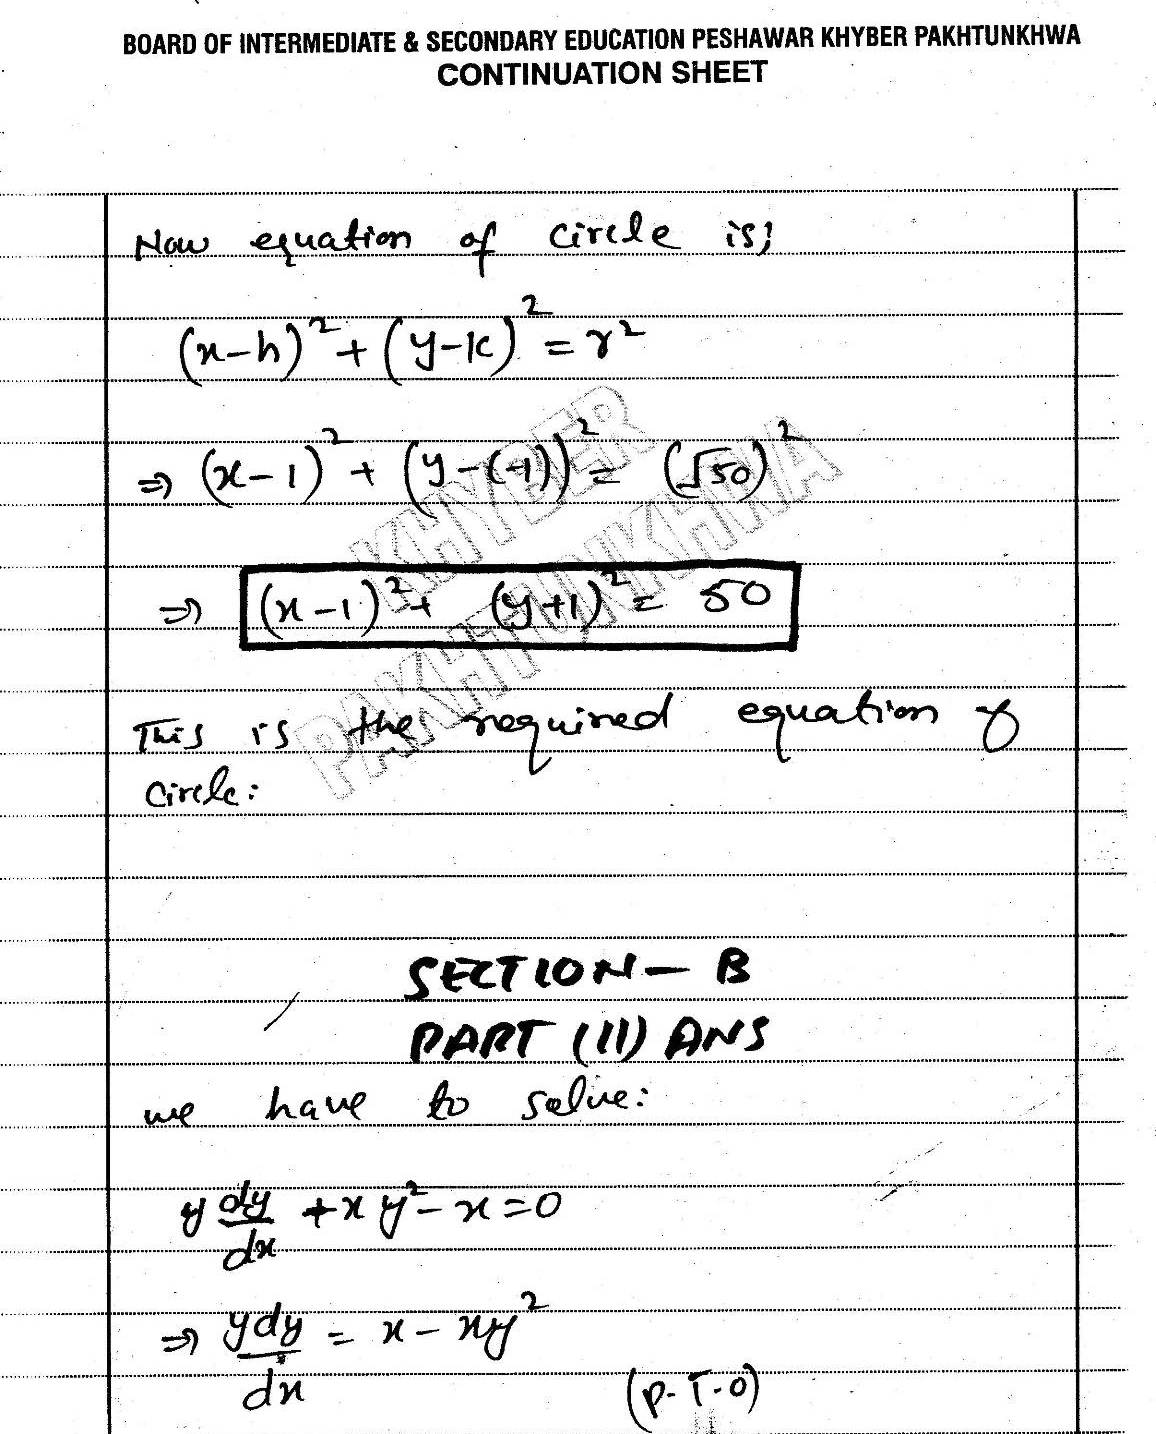 BOARD OF INTERMEDIATE & SECONDARY EDUCATION PESHAWAR KHYBER PAKHTUNKHWA
CONTINUATION SHEET
Now equation of circle is;
(x-h)² + (y-k)² = r²
⇒ (x-1)² + (y-(-1))² = (√50)²
⇒ (x-1)² + (y+1)² = 50
KHYBER
PAKHTUNKHWA
This is the required equation of
circle:
SECTION - B
PART (II) ANS
we have to solve:
y dy/dx + xy² - x = 0
⇒ ydy/dx = x - xy²
(P.T.O)